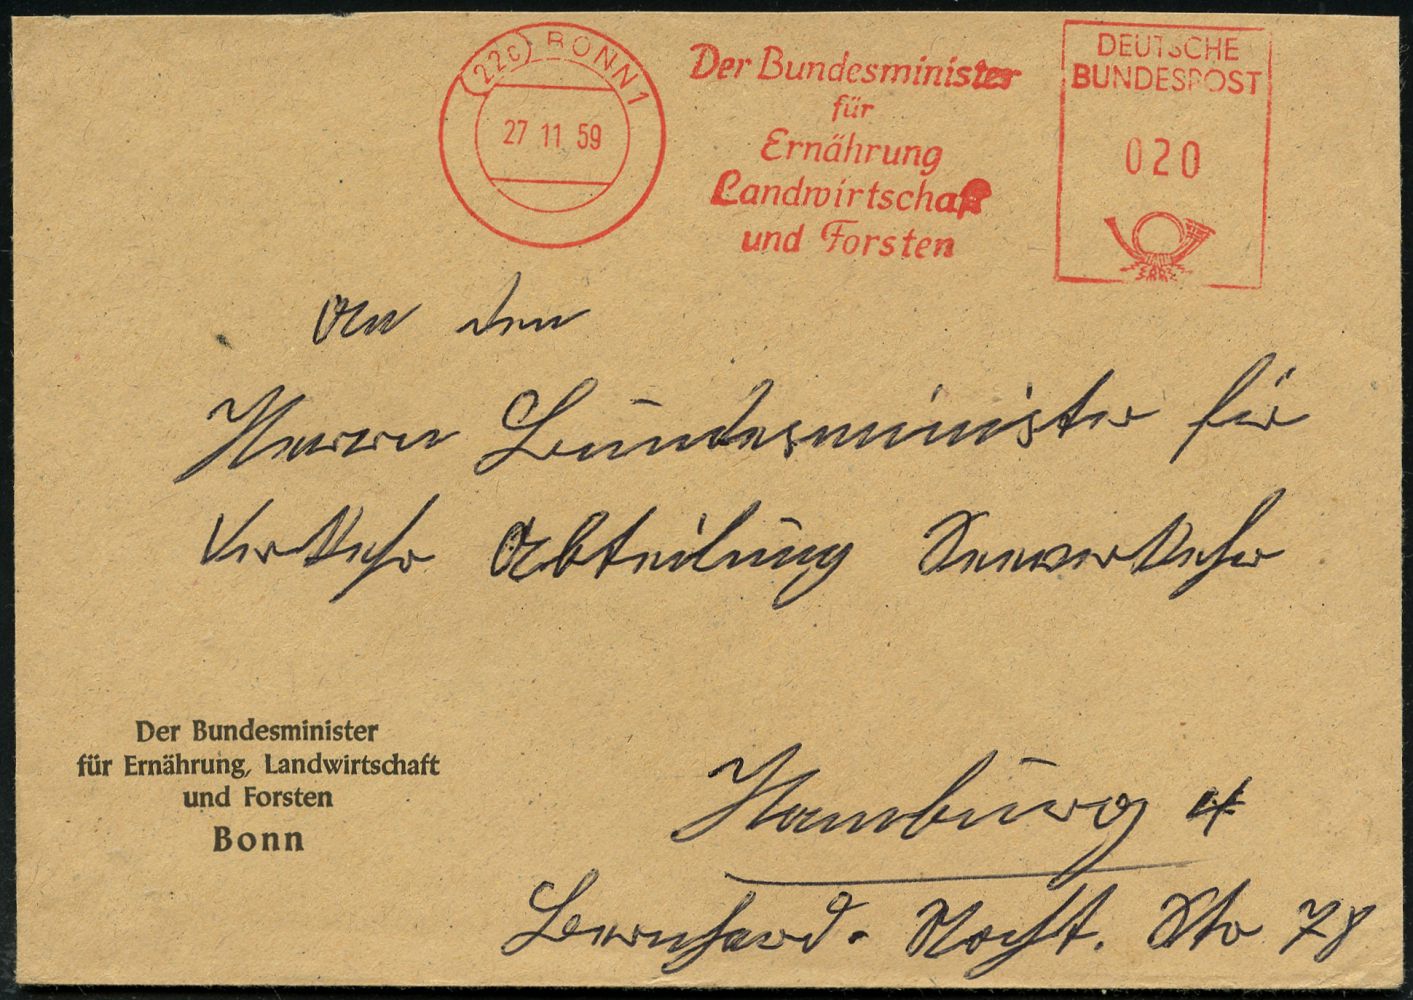 (22c) BONN 1
27 11 59
Der Bundesminister
für
Ernährung
Landwirtschaft
und Forsten
DEUTSCHE
BUNDESPOST
020
An den
Herrn Bundesminister für
Verkehr Abteilung Seeverkehr
Der Bundesminister
für Ernährung, Landwirtschaft
und Forsten
Bonn
Hamburg 4
Bernhard-Nocht. Str 78